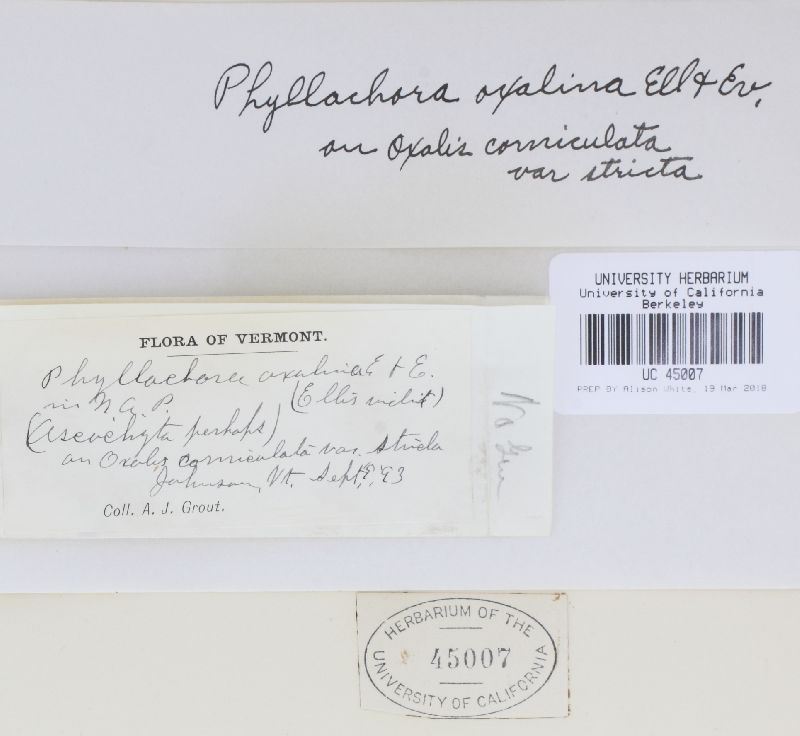 Phyllachora oxalina Ell & Ev.
on Oxalis corniculata
var stricta
UNIVERSITY HERBARIUM
University of California
Berkeley
UC 45007
PREP BY Alison White, 19 Mar 2018
FLORA OF VERMONT.
Phyllachora oxalina E & E.
in N. A. P. (Ellis vidit)
(Ascochyta perhaps)
on Oxalis corniculata var. stricta
Johnson, Vt. Sept, '93
Coll. A. J. Grout.
No
HERBARIUM OF THE
45007
UNIVERSITY OF CALIFORNIA